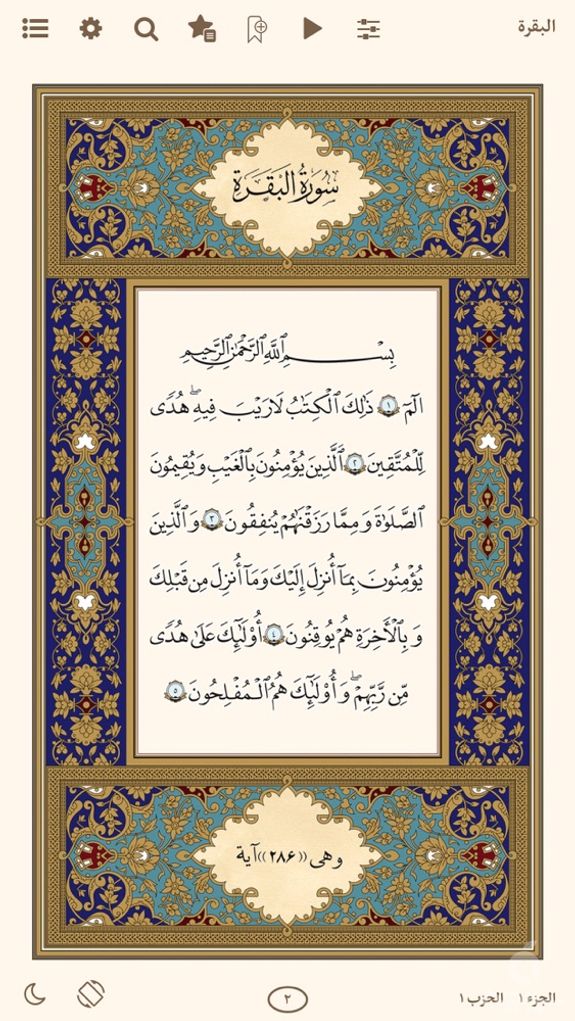 البقرة
سُورَةُ الْبَقَرَةِ
بِسْمِ اللَّهِ الرَّحْمَٰنِ الرَّحِيمِ
الٓمٓ ١ ذَٰلِكَ الْكِتَابُ لَا رَيْبَ ۛ فِيهِ ۛ هُدًى
لِّلْمُتَّقِينَ ٢ الَّذِينَ يُؤْمِنُونَ بِالْغَيْبِ وَيُقِيمُونَ
الصَّلَوٰةَ وَمِمَّا رَزَقْنَٰهُمْ يُنفِقُونَ ٣ وَالَّذِينَ
يُؤْمِنُونَ بِمَآ أُنزِلَ إِلَيْكَ وَمَآ أُنزِلَ مِن قَبْلِكَ
وَبِالْآخِرَةِ هُمْ يُوقِنُونَ ٤ أُوْلَٰٓئِكَ عَلَىٰ هُدًى
مِّن رَّبِّهِمْ ۖ وَأُوْلَٰٓئِكَ هُمُ الْمُفْلِحُونَ ٥
وهی ((٢٨۶)) آیة
الجزء ١ الحزب ١
٢